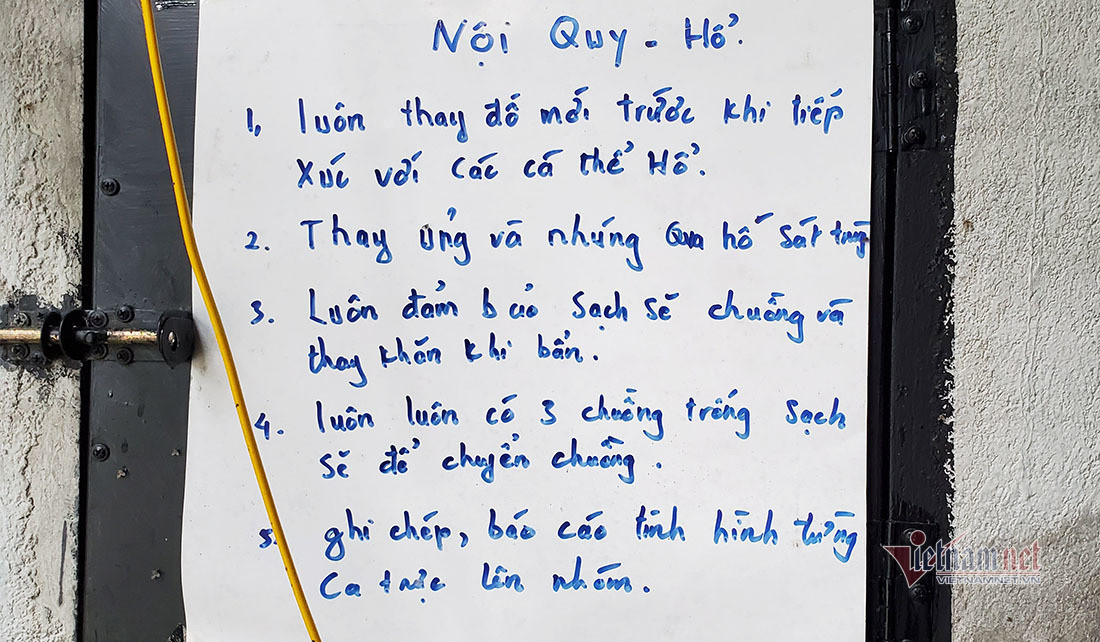 Nội Quy - Hổ.
1, luôn thay đồ mới trước khi tiếp
Xúc với các cá thể Hổ.
2. Thay ủng và nhúng Qua hố sát trùng
3. Luôn đảm bảo sạch sẽ chuồng và
thay khăn khi bẩn.
4. luôn luôn có 3 chuồng trống sạch
sẽ để chuyển chuồng.
5. ghi chép, báo cáo tình hình từng
Ca trực lên nhóm.
Vietnamnet
VIETNAMNET.VN